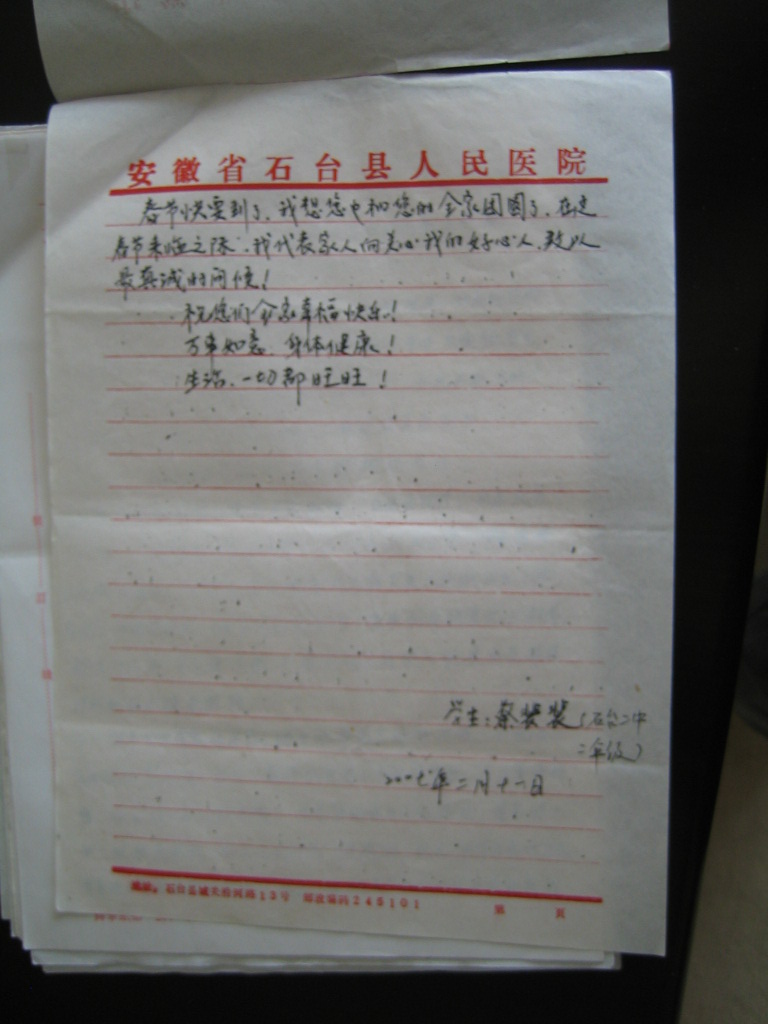 安徽省石台县人民医院
春节快要到了，我想您也和您的全家团圆了，在这
春节来临之际，我代表家人向关心我的好心人，致以
最真诚的问候！
祝您们全家幸福快乐！
万事如意，身体健康！
生活，一切都旺旺！
学生：蔡装装（石台二中
二年级）
二〇〇七年二月十一日
地址：石台县城关 路13号 邮政编码245101
第 页